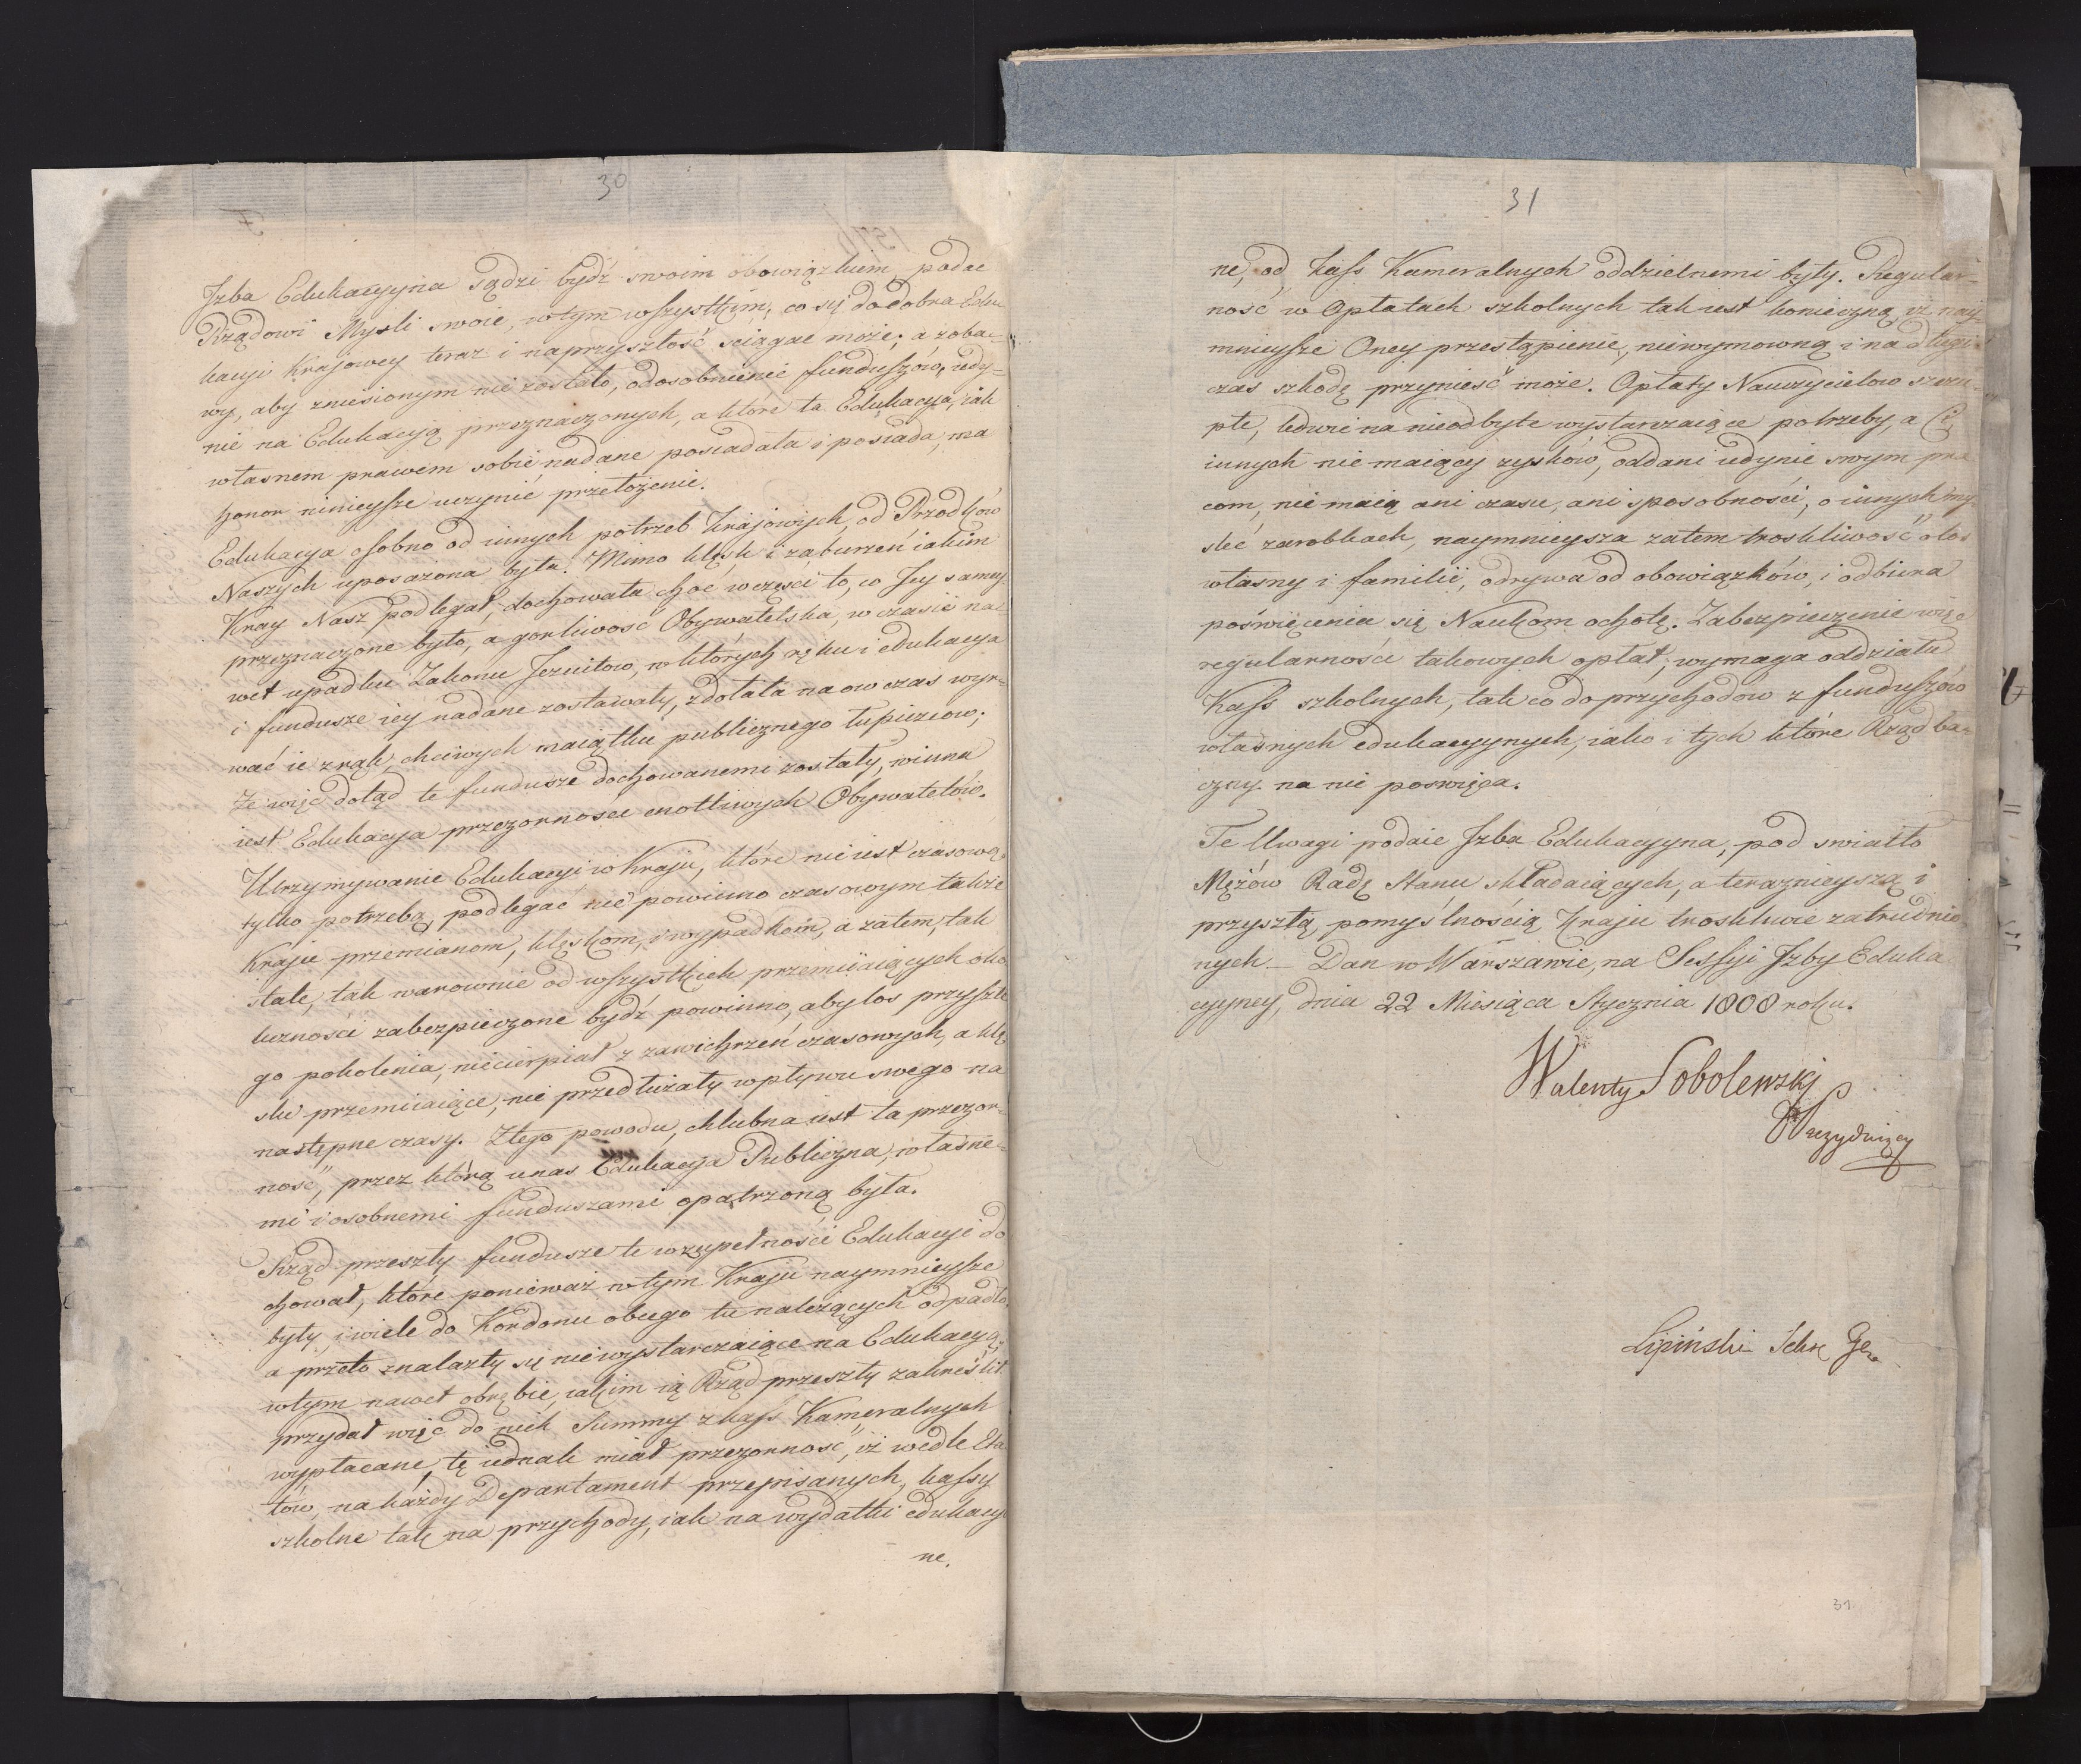 30
Jzba Edukacyyna sądzi bydź swoim obowiązkiem podac
Rządowi Mysli swoie, wtym wszystkim, co się do dobra Edu
kacyi Krajowey teraz i naprzyszłość sciągac może; a zoba-
wy, aby zniesionym nie zostało, odosobnienie funduszów, iedy-
nie na Edukacyą przeznaczonych, a które ta Edukacya, iak
własnem prawem sobie nadane posiadała i posiada, ma
honor ninieysze uczynić przełożenie.
Edukacya osobno od innych potrzeb Krajowych, od Przodków
Naszych uposażona była. Mimo klęsk i zaburzeń iakim
Kray Nasz podlegał, dochowała choć wczęści to, co Jey samey
przeznaczone było, a gorliwosc Obywatelska, w czasie na-
wet upadku Zakonu Jezuitow, w których ręku i edukacya
i fundusze iey nadane zostawały, zdołała naowczas wyr-
wać ie z rąk chciwych maiątku publicznego łupiezcow;
Ze więc dotąd te fundusze dochowanemi zostały, winna
iest Edukacya przezornosci cnotliwych Obywatelów.
Utrzymywanie Edukacyi w Kraju, które nie iest czasową
tylko potrzebą, podlegać nie powinno czasowym także
Kraju przemianom, klęskom, i wypadkom, a zatem, tak
stale, tak warownie od wszystkich przemiiaiących oko
liczności zabezpieczone bydź powinno, aby los przyszłe
go pokolenia, niecierpiał z zawichrzeń czasowych, a klę
ski przemiiaiące, nie przedłużały wpływu swego na
następne czasy. Ztego powodu, chlubna iest ta przezor-
ność, przez którą unas Edukacya Publiczna, własne-
mi i osobnemi funduszami opatrzoną była.
Rząd przeszły fundusze te wzupełności Edukacyi do
chował, które ponieważ wtym Kraju naymnieysze
były, i wiele do Kordonu obcego tu należących odpadło,
a przeto znalazły się niewystarczaiące na Edukacyą,
wtym nawet obrębie, iakim ią Rząd przeszły zakreślił,
przydał więc do nich Summy z kass Kameralnych
wypłacane, tę iednak miał przezorność, iż wedle Eta
tów, na każdy Departament przepisanych, kassy
szkolne tak na przychody, iak na wydatki edukacyi
ne,
31
ne, od kass Kameralnych oddzielnemi były. Regular-
ność w Opłatach szkolnych tak iest konieczną, iż nay-
mnieysze Oney przestąpienie, niewymowną i na długi
czas szkodę przynieść może. Opłaty Nauczycielow szczu-
płe, ledwie na nieodbyte wystarczaiące potrzeby, a Ci,
innych nie maiący zysków, oddani iedynie swym pra
com, nie maią ani czasu, ani sposobności, o innych my
śleć zarobkach, naymnieysza zatem troskliwość o los
własny i familii, odrywa od obowiązków, i odbiera
poświęcenia się Naukom ochotę. Zabezpieczenie więc
regularności takowych opłat, wymaga oddziału
Kass szkolnych, tak co do przychodow z funduszów
własnych edukacyynych, iako i tych które Rząd ba-
czny na nie poswięca.
Te Uwagi podaie Jzba Edukacyyna, pod swiatło
Mężów Radę Stanu składaiących, a teraznieyszą i
przyszłą, pomyślnością Kraju troskliwie zatrudnio
nych – Dan w Warszawie, na Sessyi Jzby Eduka
cyyney, dnia 22 Miesiąca Stycznia 1808 roku.
Walenty Sobolewski
Prezyduiący
Lipiński Sekr Gen
31